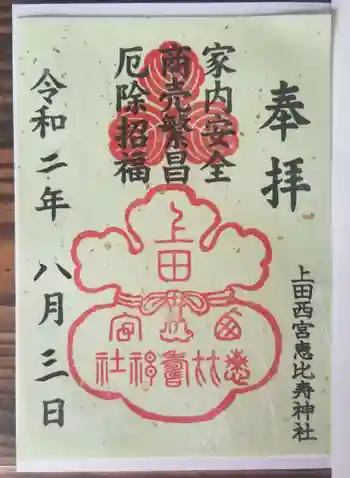 奉拝
上田西宮恵比寿神社
家内安全
商売繁昌
厄除招福
上田
西宮恵比寿神社
令和二年
八月三日